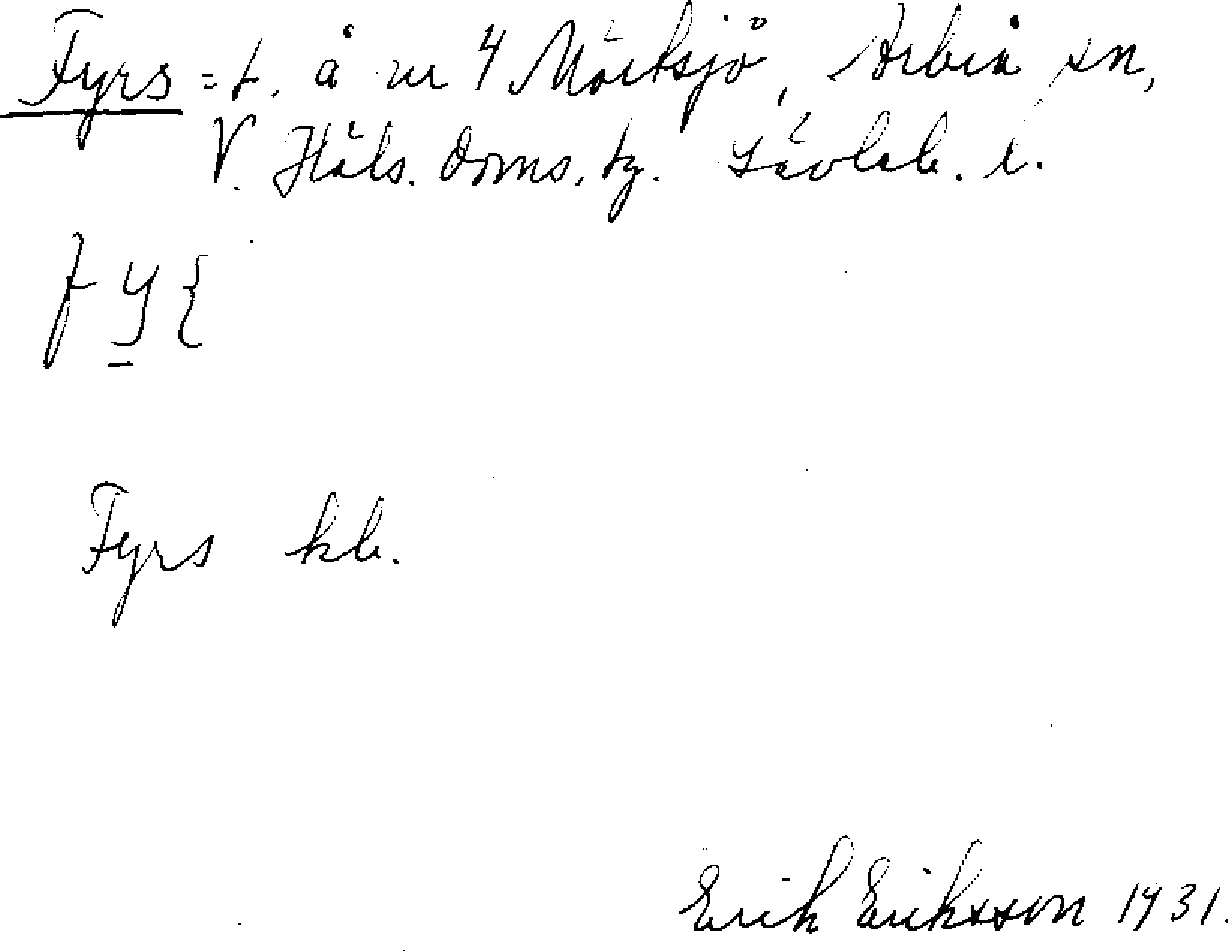 Fyrs = t. å nr 4 Mörtsjö, Arbrå sn,
V. Häls. doms. tg. Gävleb. l.
Fyrs kb.
Erik Eriksson 1931.